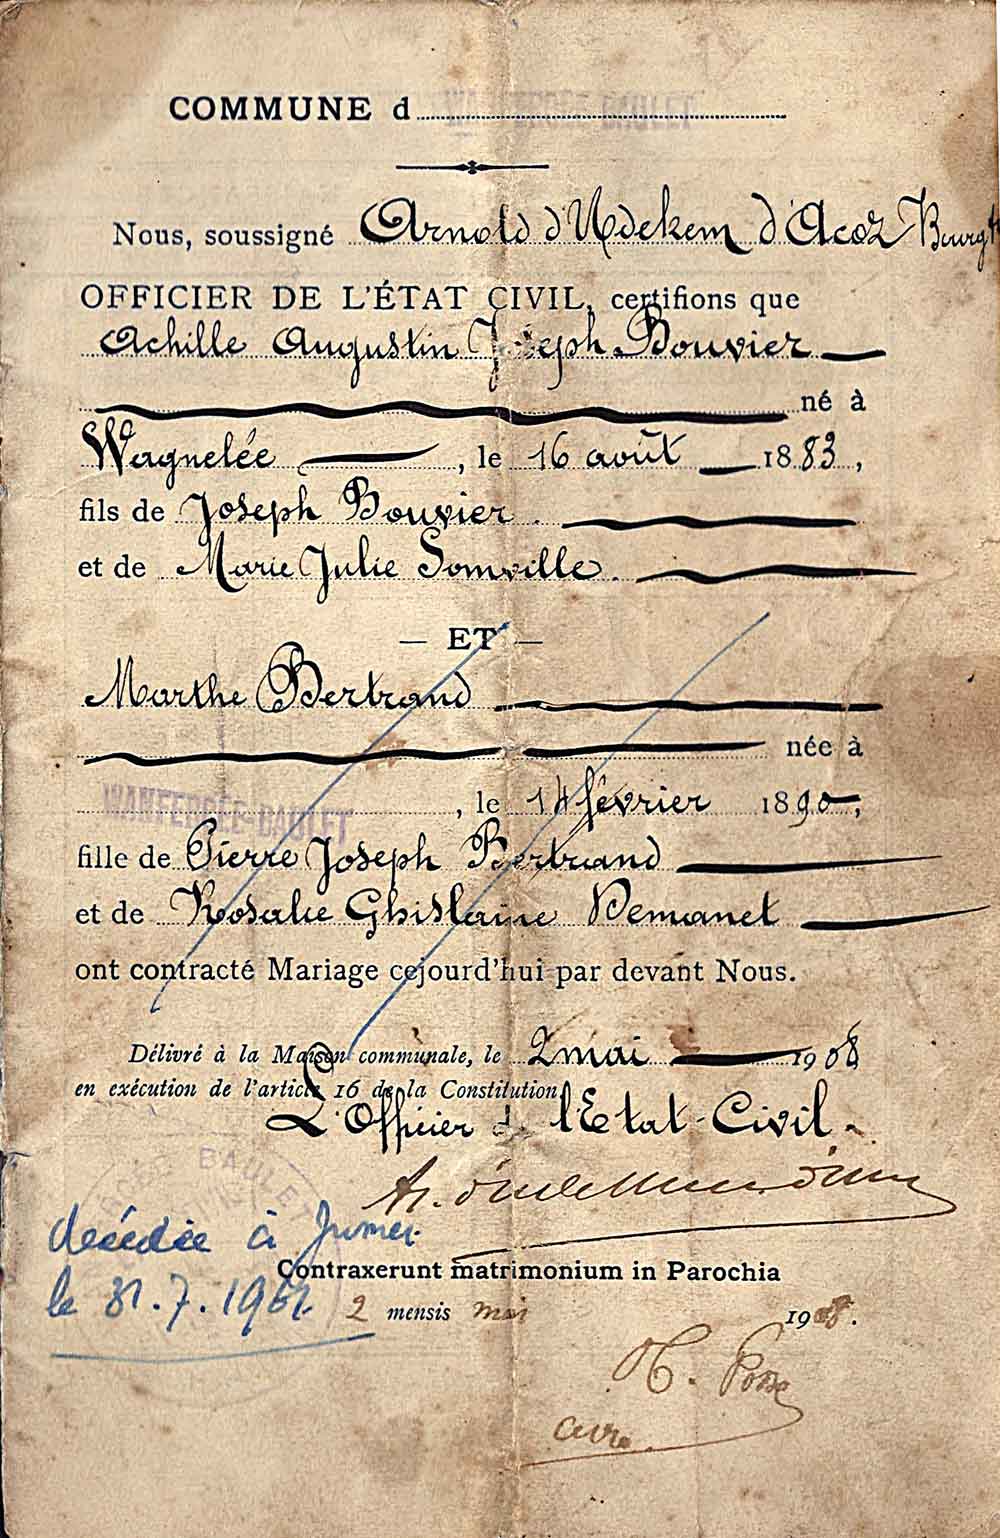 COMMUNE d WANFERCÉE-BAULET
Nous, soussigné Arnold d'Udekem d'Acoz Bourgtre
OFFICIER DE L'ÉTAT CIVIL, certifions que
Achille Augustin Joseph Bouvier
né à
Wagnelée, le 16 août 1883,
fils de Joseph Bouvier.
et de Marie Julie Somville.
— ET —
Marthe Bertrand
née à
WANFERCÉE-BAULET, le 14 février 1890,
fille de Pierre Joseph Bertrand
et de Rosalie Ghislaine Demanet
ont contracté Mariage cejourd'hui par devant Nous.
Délivré à la Maison communale, le 2 mai 1908
en exécution de l'article 16 de la Constitution
L'Officier de l'Etat-Civil.
BAULET
décédée à Jumet
le 31.7.196
Contraxerunt matrimonium in Parochia
2 mensis mai 1908.
curé